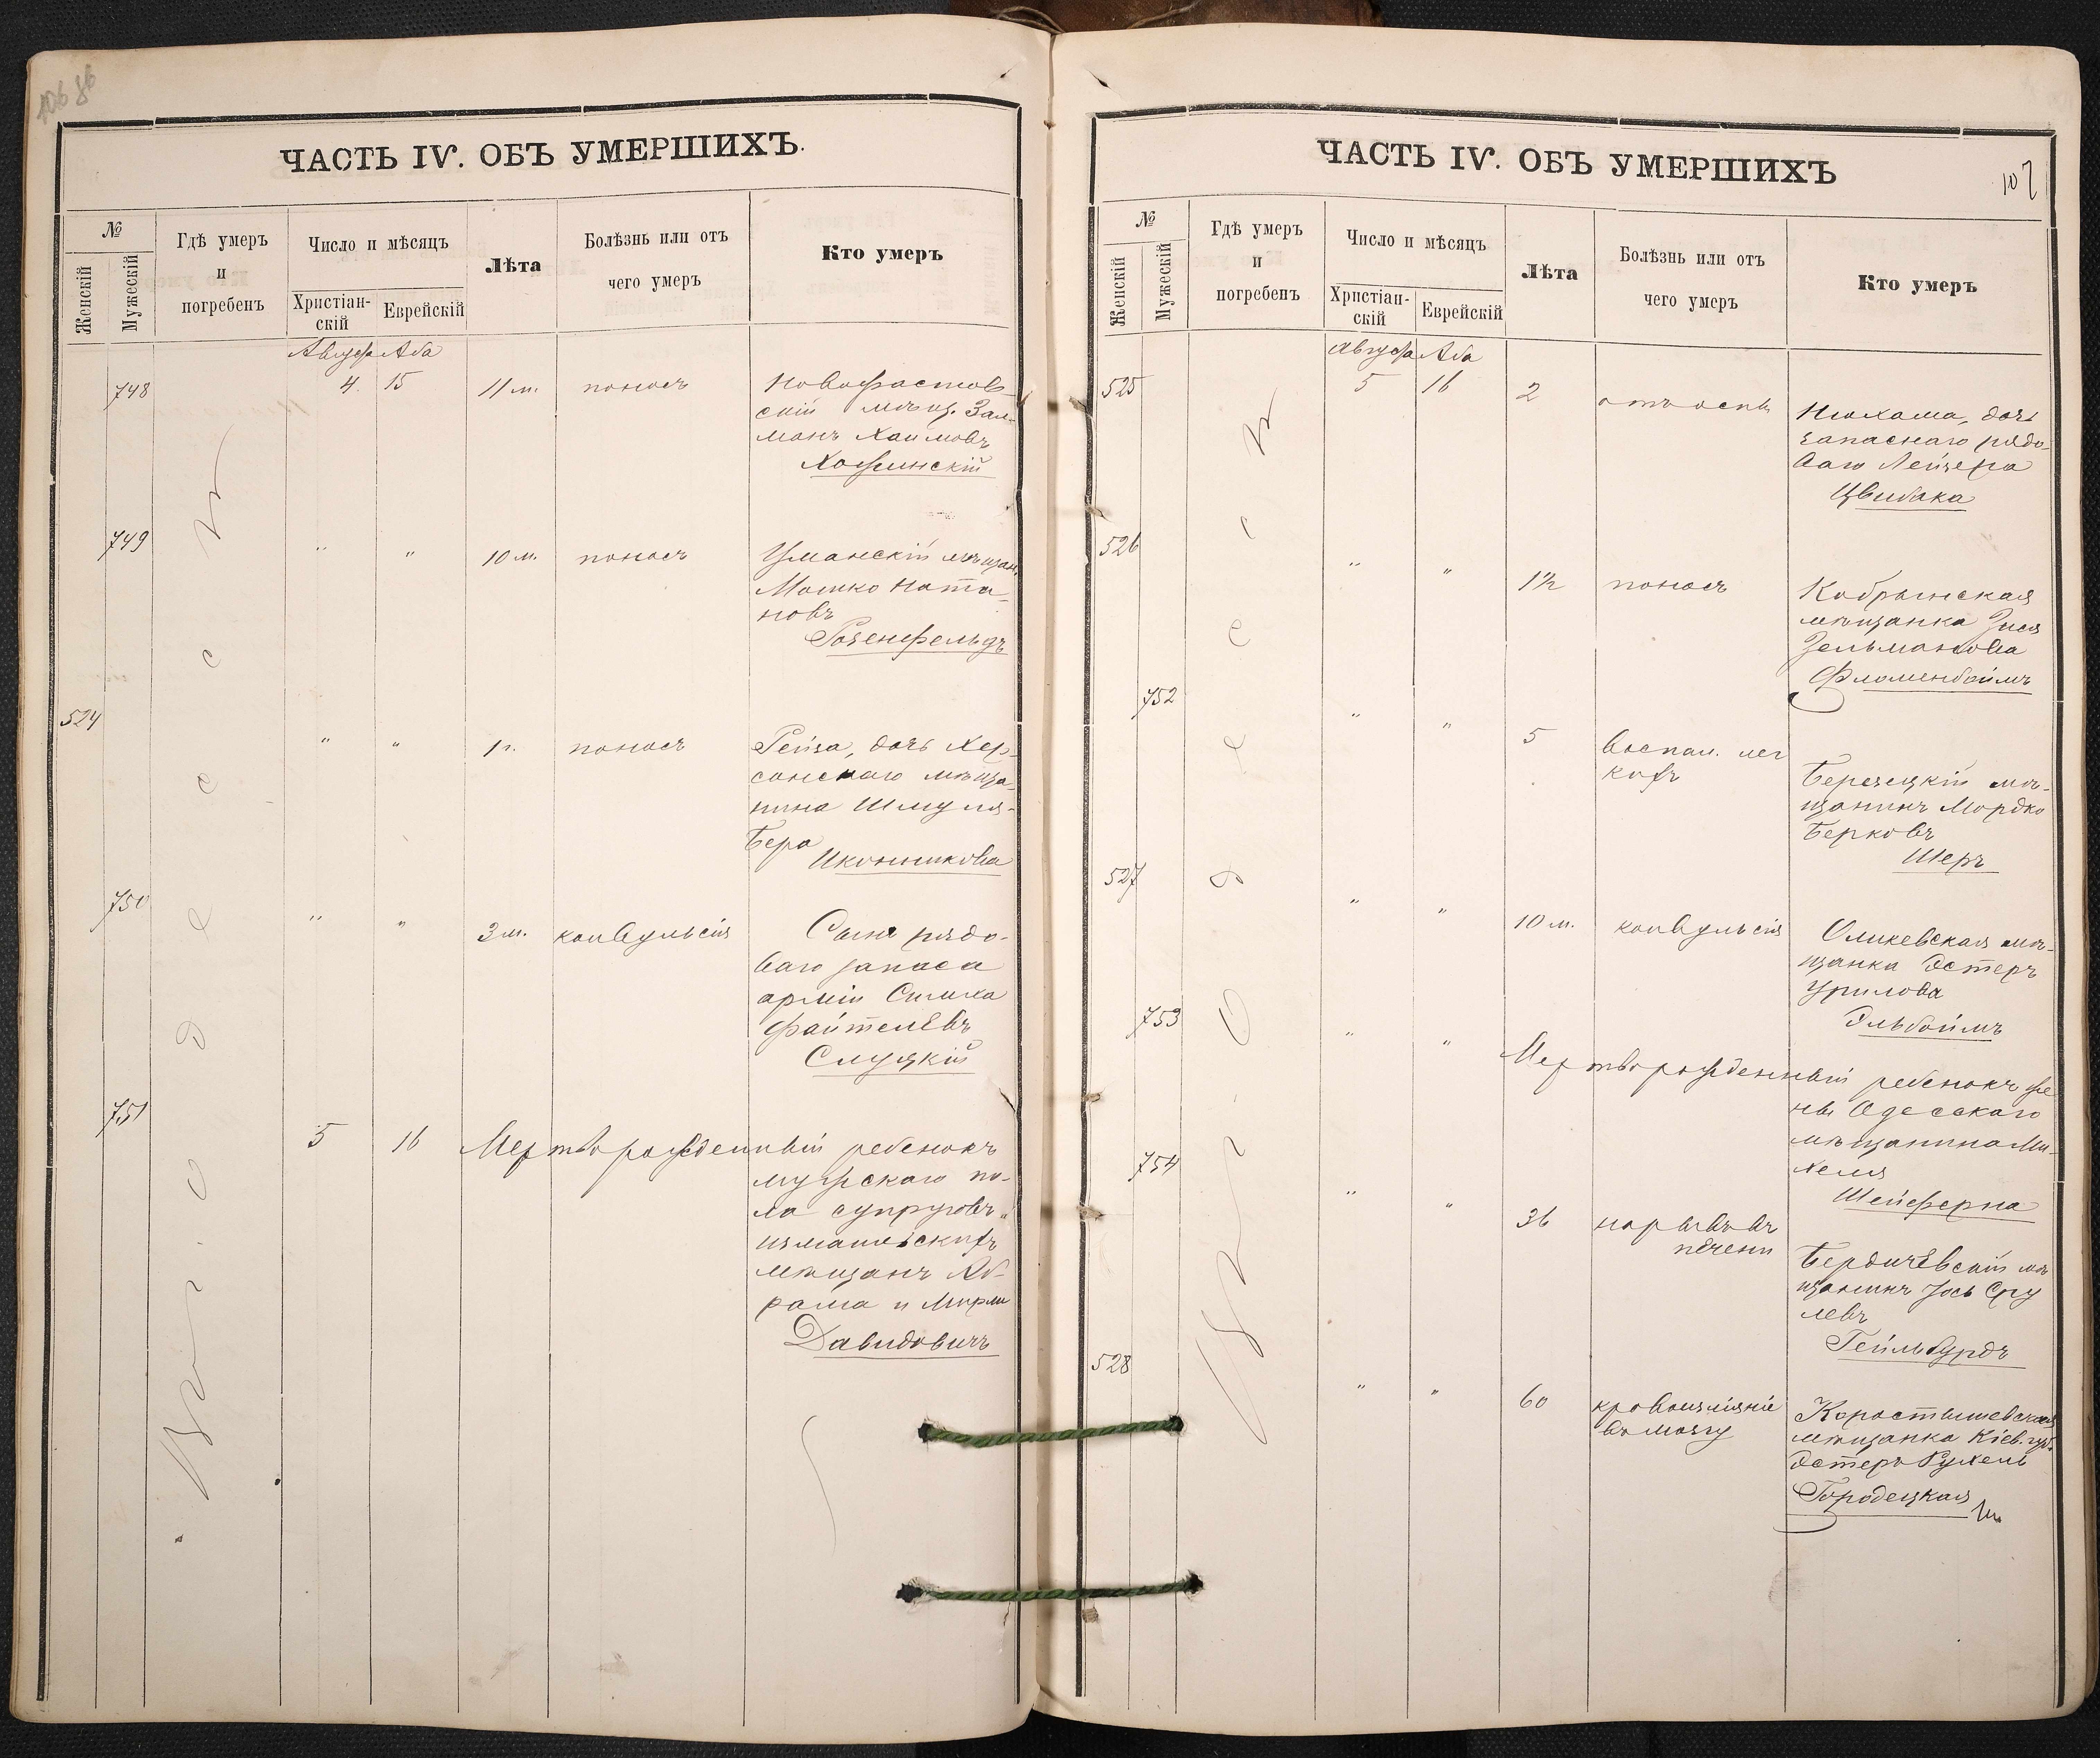 106 86
ЧАСТЬ IV. ОБЪ УМЕРШИХЪ.
№
Женскій
Мужескій
Гдѣ умеръ
и
погребенъ
Число и мѣсяцъ
Христіан-
скій
Еврейскій
Лѣта
Болѣзнь или отъ
чего умеръ
Кто умеръ
Августа Аба
748 4. 15 11 м. поносъ
Новофастов-
скій мѣщ. Зал-
манъ Хаимовъ
749 " " 10 м. поносъ
Уманскій мѣщан.
Мошко Ната-
новъ
Розенфельдъ
524 " " 1 г. поносъ
Рейза, дочь Хер-
сонскаго мѣща-
нина Шмуля-
Бера
Иконникова
750 " " 3 м. конвульсія
Сынъ рядо-
ваго запаса
арміи Симха
Файтелевъ
Слуцкій
751 5 16 Мертворожденный ребенокъ
мужскаго по-
ла супруговъ
измаильскихъ
мѣщанъ Аб-
рама и Мирли
Давидовичъ
Въ г. Одессѣ
ЧАСТЬ IV. ОБЪ УМЕРШИХЪ
107
№
Женскій
Мужескій
Гдѣ умеръ
и
погребенъ
Число и мѣсяцъ
Христіан-
скій
Еврейскій
Лѣта
Болѣзнь или отъ
чего умеръ
Кто умеръ
Августа Аба
525 5 16 2 отъ оспы
Нюхама, дочь
запаснаго рядо-
ваго Лейзера
Цвибака
526 " " 1½ поносъ
Кобрынская
мѣщанка Зися
Зельманова
Фломенбоймъ
752 " " 5 воспал. лег
кихъ
мѣ-
щанинъ Мордко
Берковъ
Шеръ
527 " " 10 м. конвульсія
Оликевская мѣ-
щанка Эстеръ
Урилова
Эльбоймъ
753 " " Мертворожденный ребенокъ же
ны Одесскаго
мѣщанина Ми-
хеля
Шейферна
754 " " 36 нарывъ въ
печени
Бердичевскій мѣ
щанинъ Іось Сру
левъ
Гейльбурдъ
528 " " 60 кровоизліяніе
въ мозгу
Коростышевская
мѣщанка Кіев. губ.
Эстеръ Рухель
Городецкая
Въ г. Одессѣ